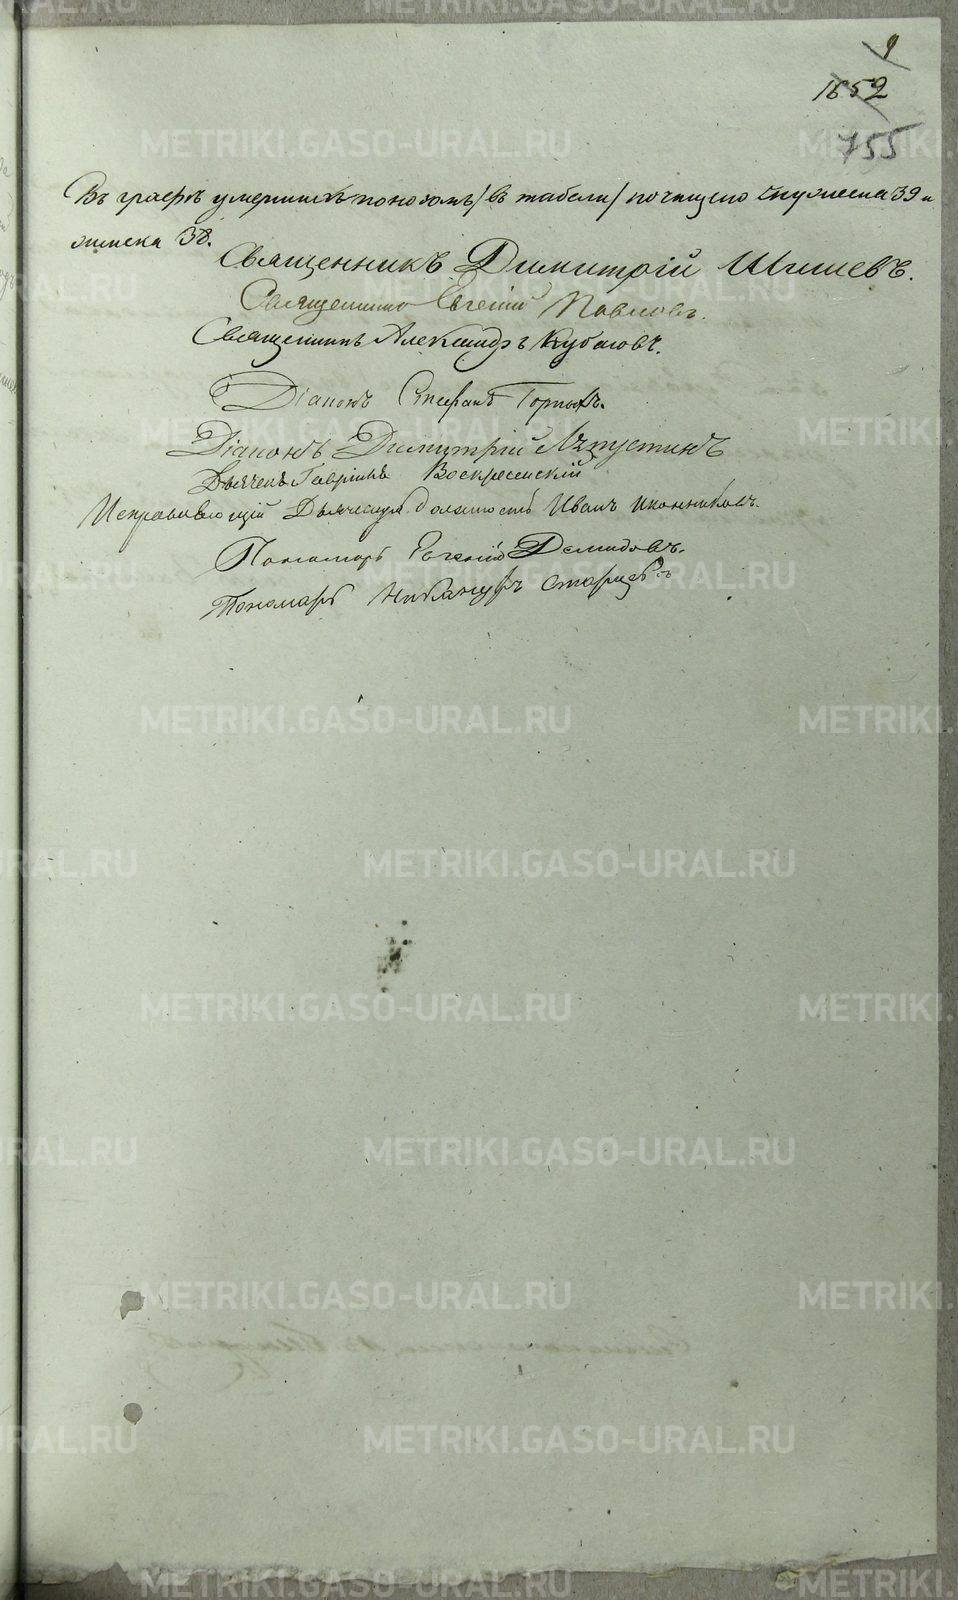 9
1652
755
Въ графѣ умершихъ поносомъ / въ табели / почищено мужеска 39 и
женска 38.
Священникъ Димитрій Шишевъ.
Священникъ Евгеній Павловъ.
Священникъ Александръ Кубасовъ.
Діаконъ Стефанъ Горныхъ.
Діаконъ Димитрій Лѣпустинъ
Дьячекъ Гавріилъ Воскресенскій
Исправляющій Дьяческую должность Иванъ Иконниковъ.
Пономарь Евгеній Демидовъ.
Пономарь Никаноръ Старцевъ
METRIKI.GASO-URAL.RU